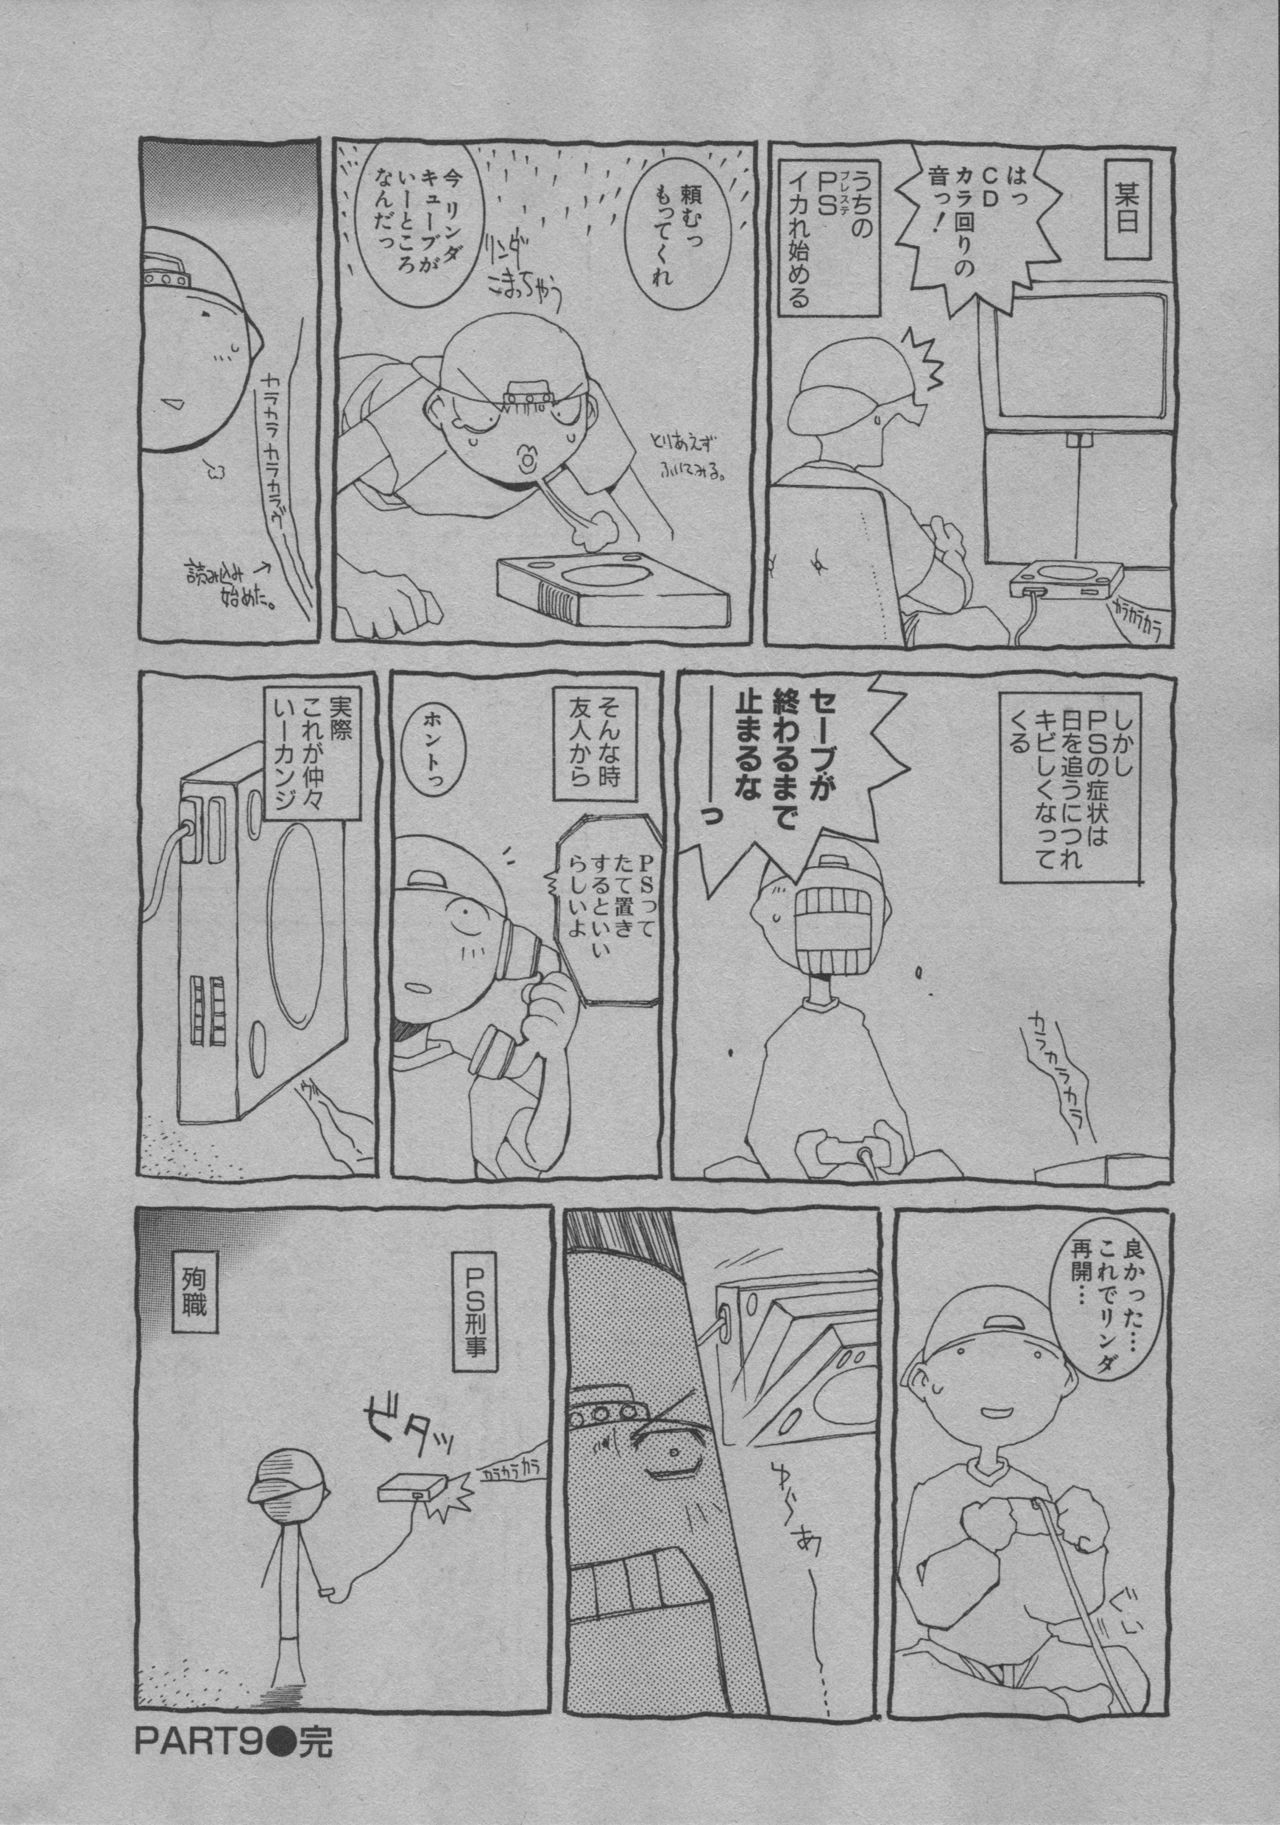 某日
はっ
CD
カラ回りの
音っ!
うちの
PS
プレステ
イカれ始める
カラカラカラ
頼むっ
もってくれ
今リンダ
キューブが
いーところ
なんだっ
リンダ
こまっちゃう
とりあえず
ふいてみる。
カラカラカラカラヴー
読み込み
始めた。
しかし
PSの症状は
日を追うにつれ
キビしくなって
くる
セーブが
終わるまで
止まるな
――っ
カラカラカラカラ
そんな時
友人から
PSって
たて置き
するといい
らしいよ
ホントっ
実際
これが仲々
いーカンジ
良かった…
これでリンダ
再開…
ぐい
ゆらぁ〜……
PS刑事
ビタッ
カラカラカラ
殉職
PART9●完